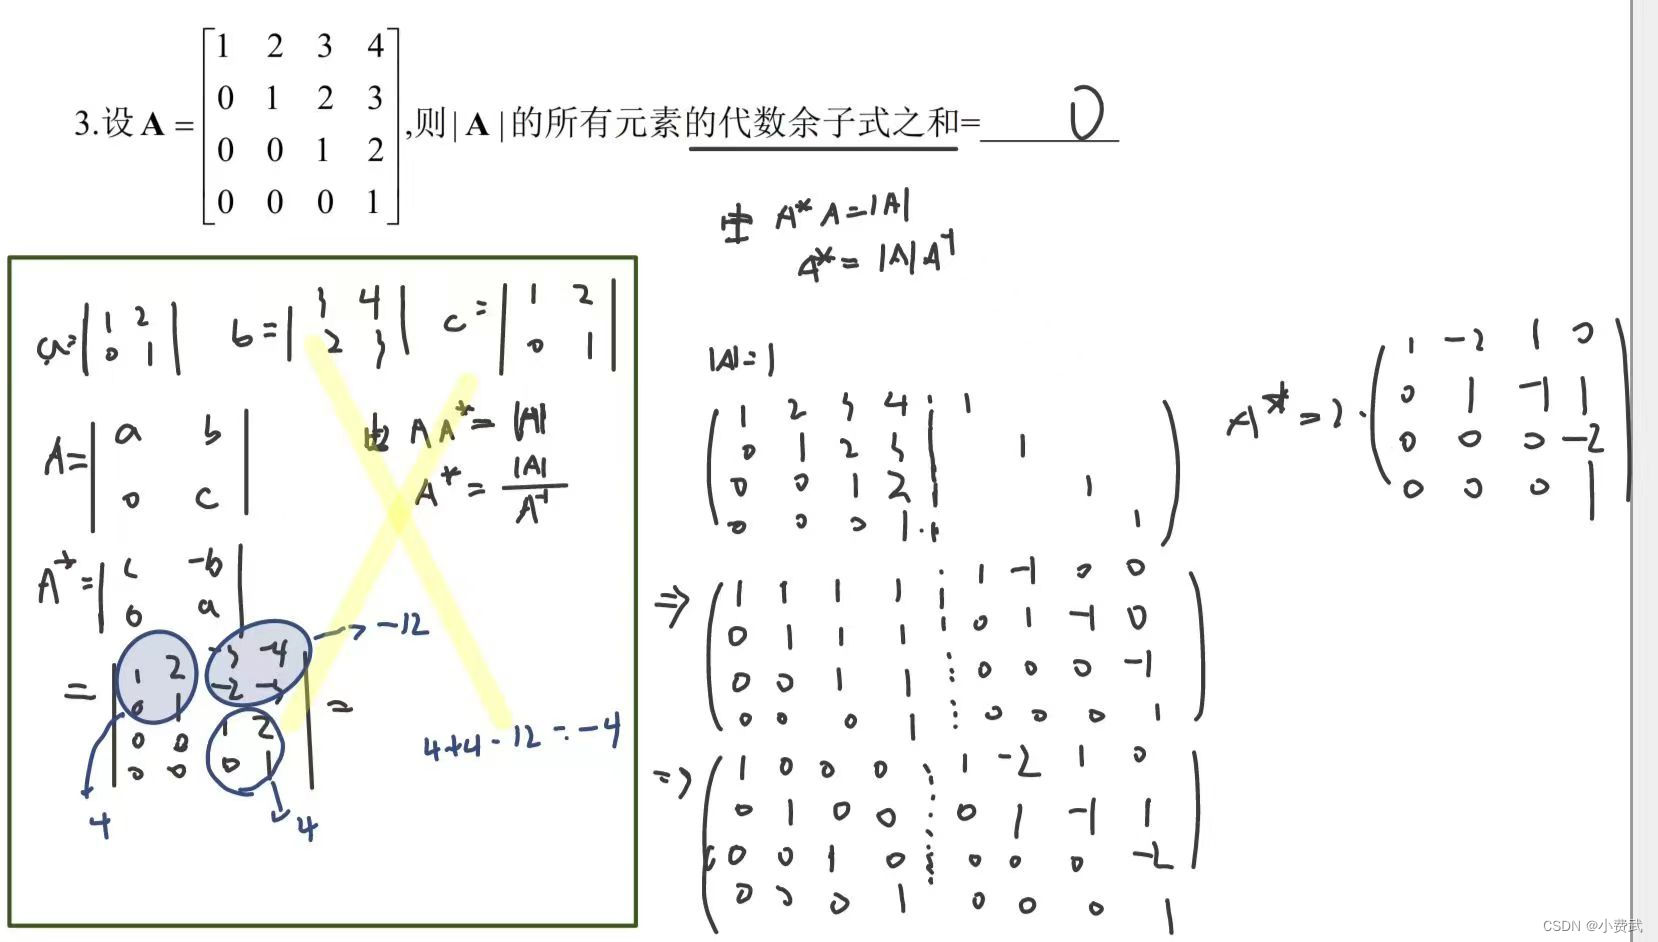 3.设 A = [1 2 3 4
0 1 2 3
0 0 1 2
0 0 0 1]
,则|A|的所有元素的代数余子式之和= 0
由 A* A=|A|
A* = |A| A⁻¹
a=|1 2
0 1|
b=|3 4
2 3|
c=|1 2
0 1|
A=|a b
0 c|
由 A A* = |A|
A* = |A| / A⁻¹
A* =|c -b
0 a|
= |1 2 -3 -4
0 1 -2 -3
0 0 1 2
0 0 0 1| =
→ -12
4
4
4+4-12=-4
|A|=1
(1 2 3 4 ⋮ 1
0 1 2 3 1
0 0 1 2 1
0 0 0 1 1)
⇒ (1 1 1 1 ⋮ 1 -1 0 0
0 1 1 1 0 1 -1 0
0 0 1 1 ⋮ 0 0 0 -1
0 0 0 1 ⋮ 0 0 0 1)
⇒ (1 0 0 0 ⋮ 1 -2 1 0
0 1 0 0 0 1 -1 1
0 0 1 0 ⋮ 0 0 0 -2
0 0 0 1 0 0 0 1)
(1 -2 1 0
0 1 -1 1
0 0 0 -2
0 0 0 1)
CSDN @小费武